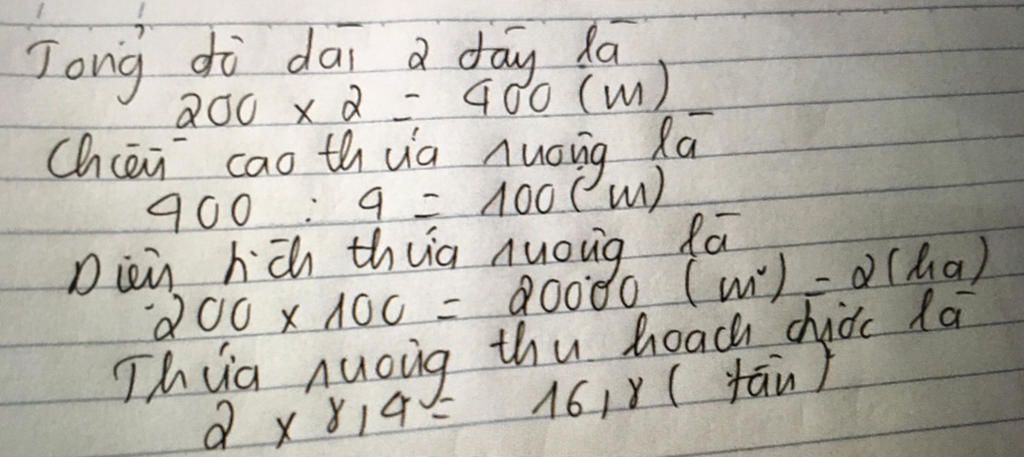 Tổng độ dài 2 đáy là
200 x 2 = 400 (m)
Chiều cao thửa ruộng là
400 : 4 = 100 (m)
Diện tích thửa ruộng là
200 x 100 = 20000 (m²) = 2 (ha)
Thửa ruộng thu hoạch được là
2 x 8,4 = 16,8 (tấn)